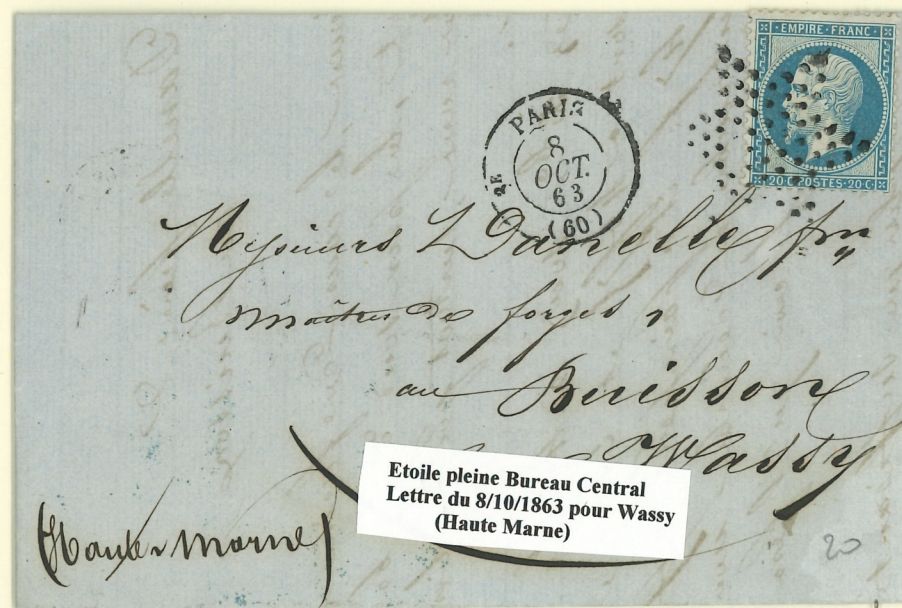 EMPIRE·FRANC
20·C·POSTES·20·C·
PARIS
8
OCT.
63
(60)
2E
Messieurs L Danelle frs
maîtres de forges,
au Buisson
Wassy
(Haute Marne)
Etoile pleine Bureau Central
Lettre du 8/10/1863 pour Wassy
(Haute Marne)
20